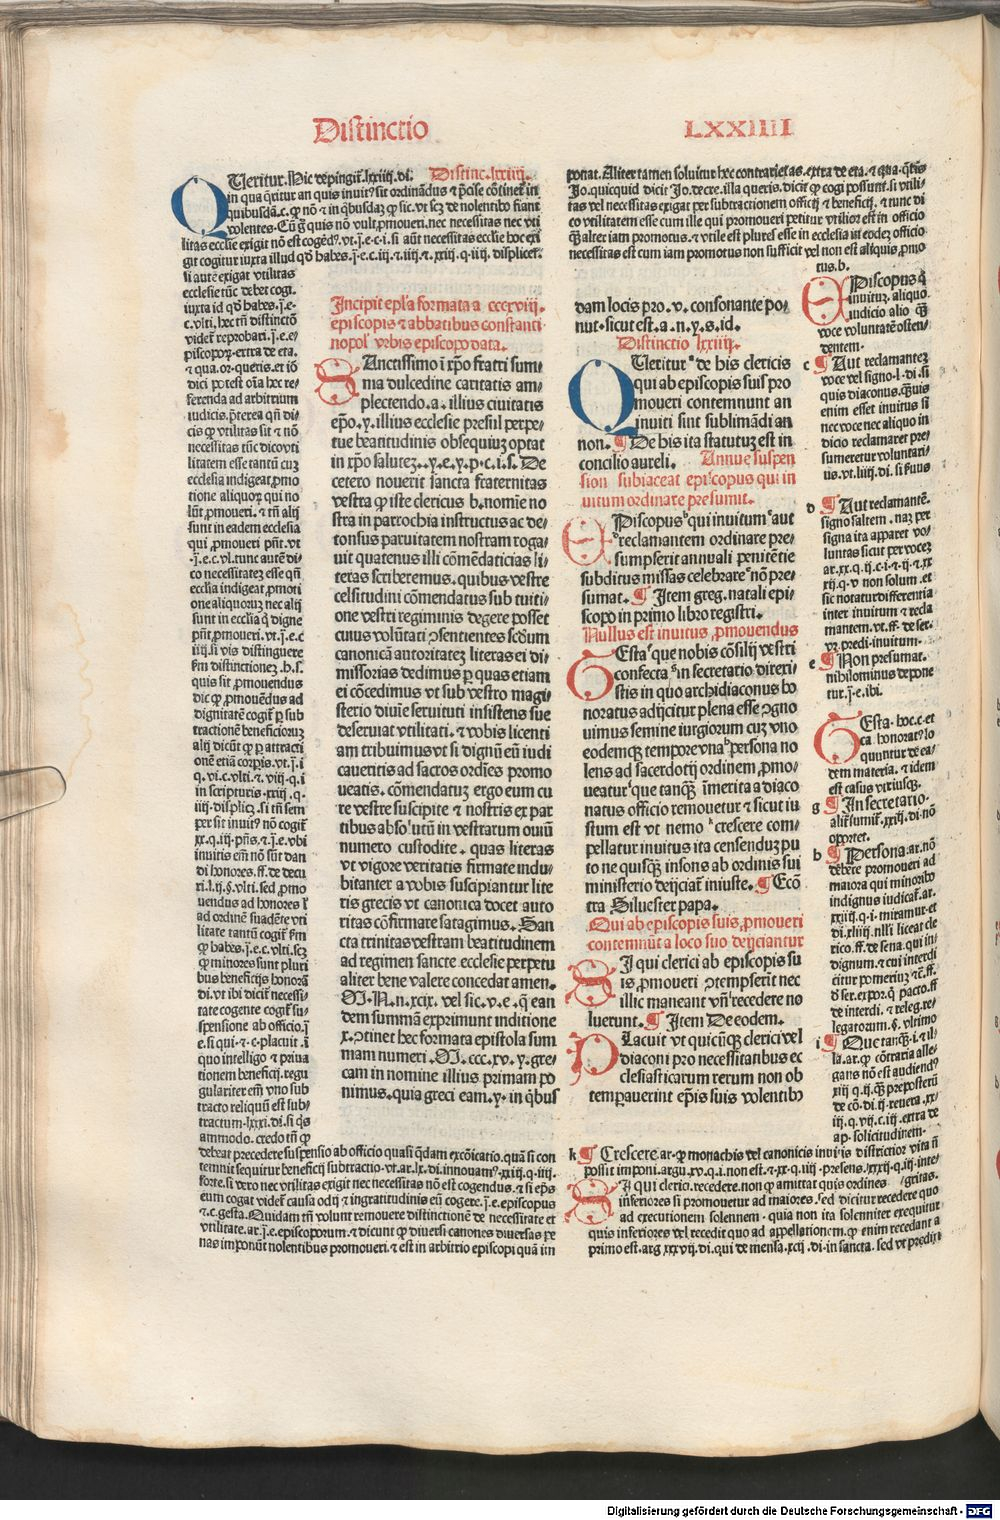 Distinctio LXXIIII
QUeritur. Hic depingit᷑. lxxiiij. di. Distinc. lxxiiij.
in qua q̄ritur an quis inuit⁹ sit ordinādus ⁊ p̄cise cōtinet᷑ in
quibusdā.c. ꝙ nō ⁊ in q̄busdaꝫ ꝙ sic. vt scꝫ de nolentibo fiant
volentes.
litas ecclīe exigit nō est cogēd⁹. vt .j.e.c.i. si aūt necessitas ecclīe hoc exi
git cogitur iuxta illud qd̄ habes .j.e.c.iij.⁊.iiij.⁊.xxiij.q.iiij. displicet.
si aūt exigat vtilitas
ecclesie tūc debet cogi.
iuxta id qd̄ habes .j.e.
c.vlti. hec tn̄ distinctō
videt᷑ reprobari .j.e.e/
piscoporꝝ. extra de eta.
⁊ qua. or. queris. et iō
dici potest oīa hec re/
ferenda ad arbitrium
iudicis. p̄terea qn̄ di/
cis ꝙ vtilitas sit ⁊ nō
necessitas tūc dico vti
litatem esse tantū cuꝫ
ecclesia indigeat ꝓmo
tione aliquorꝝ qui no
lūt ꝓmoueri. ⁊ tn̄ alij
sunt in eadem ecclesia
qui ꝓmoueri pn̄t. vt
.j.e.c.vl. tunc autē di
co necessitateꝫ esse qn̄
ecclīa indigeat ꝓmoti
one aliquorū nec alij
sunt in ecclīa q̄ digne
pn̄t ꝓmoueri. vt .j.e.c
iij. si vis distinguere
ẜm distinctioneꝫ .b.s.
quis sit ꝓmouendus
dic ꝙ ꝓmouēdus ad
dignitatē cogit᷑ ꝑ sub
tractionē beneficiorꝝ
alij dicūt ꝙ ꝑ attracti
onē etiā corpīs. vt .j.i
q.vi.c.vlti.⁊.viij.q.i
in scripturis. xxiij.q.
iiij. displicꝫ. si tn̄ sem
per sit inuit⁹ nō cogit᷑
xx.q.iij. pn̄s.⁊.j.e.vbi
inuitis em̄ nō sūt dan
di honores. ff. de decu
ri.l.ij.§.vlti. sed ꝓmo
uendus ad honores ł
ad ordinē suadēte vti
litate tantū cogit᷑ ẜm
ꝙ habes .j.e.c.vlti. scꝫ
ꝙ minores sunt pluri
bus beneficijs honorā
di. vt ibi dicit᷑ necessi/
tate cogente cogit᷑ su/
spensione ab officio .j
e. si qui.⁊.c. placuit .i
quo intelligo ⁊ priua
tionem beneficij. regu
gulariter em̄ vno sub
tracto reliquū est sub/
tractum. lxxxi.di. si q̄s
ammodo. credo tn̄ ꝙ
debeat precedere suspensio ab officio quasi q̄dam excōicatio. quā si con
temnit sequitur beneficij subtractio. vt.ar.lx.di. innouam⁹. xxiij.q.iiij.
forte. si vero nec vtilitas exigit nec necessitas nō est cogendus. ⁊ si ep̄s
eum cogat videt᷑ causa odij ⁊ ingratitudinis eū cogere .j.e. episcopus
⁊.c. gesta. Quidam tn̄ volunt remouere distinctionē de necessitate et
vtilitate. ar .j.e. episcoporum. ⁊ dicunt ꝙ diuersi canones diuersas pe
nas imponūt nolentibus promoueri. ⁊ est in arbitrio episcopi quā im
Incipit epl'a formata a cccxviij.
episcopis ⁊ abbatibus constanti
nopol' vrbis episcopo data.
SAnctissimo ī xp̄o fratri sum/
ma dulcedine caritatis am/
plectendo .a. illius ciuitatis
ep̄o .y. illius ecclesie presul perpe/
tue beatitudinis obsequiuꝫ optat
in xp̄o saluteꝫ. .y.e.y.p.c.i.s. De
cetero nouerit sancta fraternitas
vestra ꝙ iste clericus .b. nomīe no
stra in parrochia instructus ac de/
tonsus paruitatem nostram roga/
uit quatenus illi cōmēdaticias li/
teras scriberemus. quibus vestre
celsitudini cōmendatus sub tuiti/
one vestri regiminis degere posset
cuius volūtati ꝯsentientes ẜcd̄um
canonicā autoritateꝫ literas ei di/
missorias dedimus ꝑ quas etiam
ei cōcedimus vt sub vestro magi/
sterio diuīe seruituti insistens sue
deseruiat vtilitati. ⁊ vobis licenti
am tribuimus vt si dignū eū iudi
caueritis ad sacros ordīes promo
ueatis. cōmendatuꝫ ergo eum cu
re vestre suscipite ⁊ nostris ex par
tibus absolutū in vestrarum ouiū
numero custodite. quas literas
vt vigore veritatis firmate indu/
bitanter a vobis suscipiantur lite
ris grecis vt canonica docet auto
ritas cōfirmare satagimus. San
cta trinitas vestram beatitudinem
ad regimen sancte ecclesie perpetu
aliter bene valere concedat amen.
M.N.n.xcix. vel sic.v.e.q̄ ean
dem summā exprimunt inditione
x. ꝯtinet hec formata epistola sum
mam numeri. M.ccc.xv.y. gre/
cam in nomine illius primam po
nimus. quia greci eam .y. in q̄bus
ponat. Aliter tamen soluitur hec contrarietas. extra de eta. ⁊ qua. q̄ris
Jo. quicquid dicit Jo. decre. illa queris. dicit ꝙ cogi possunt. si vtili/
tas vel necessitas exigat per subtractionem officij ⁊ beneficij. ⁊ tunc di
co vtilitatem esse cum ille qui promoueri petitur vtilior est in officio
q̄ꝫ alter iam promotus. ⁊ vtile est plures esse in ecclesia in eodeꝫ officio
necessitas est cum iam promotus non sufficit vel non est aliquis ꝓmo
tus. b.
dam locis pro .v. consonante po/
nut. sicut est .a.n.y.s.id.
Distinctio lxxiiij.
QUeritur ᵃ de his clericis
qui ab episcopis suis pro
moueri contemnunt an
inuiti sint sublimādi an
non. ¶ De his ita statutuꝫ est in
concilio aureli. Annue suspen
sion subiaceat episcopus qui in
uitum ordinare presumit.
EPiscopus ᵇ qui inuitum ᶜ aut
ᵈ reclamantem ordinare pre/
sumpserit annuali penitētie
subditus missas celebrare ᵉ nō pre/
sumat. ¶ Item greg. natali epi/
scopo in primo libro registri.
Nullus est inuitus ꝓmouendus
GEsta ᶠ que nobis cōsilij vestri
confecta ᵍ in secretario direxi/
stis in quo archidiaconus ho
noratus adijcitur plena esse ꝯgno
uimus semine iurgiorum cuꝫ vno
eodemqꝫ tempore vna ʰ persona no
lens ad sacerdotij ordinem ꝓmo/
ueatur ⁱ que tanqꝫ īmerita a diaco
natus officio remouetur ⁊ sicut iu
stum est vt nemo ᵏ crescere com/
pellatur inuitus ita censenduꝫ pu
to ne quisqꝫ insons ab ordinis sui
ministerio deijciat᷑ iniuste. ¶ Ecō
tra Siluester papa.
Qui ab episcopis suis ꝓmoueri
contemnūt a loco suo deijciantur
SI qui clerici ab episcopis su
is ꝓmoueri ꝯtempserit nec
illic maneant vn̄ ˡ recedere no
luerunt. ¶ Item De eodem.
PLacuit vt quicūqꝫ clerici vel
diaconi pro necessitatibus ec
clesiasticarum rerum non ob
temꝑauerint ep̄is suis volentibꝰ
EPiscopus q̄
inuituꝫ. aliquo
iudicio alio q̄ꝫ
voce voluntatē osten/
dentem.
c ¶ Aut reclamanteꝫ
voce vel signo.l.di. si
quis diaconus. q̄ꝫuis
enim esset inuitus si
nec voce nec aliquo in
dicio reclamaret pre/
sumeretur voluntari/
us. vt. liiij.di. si ẜuus
d ¶ Aut reclamantē.
signo saltem. naꝫ per
signa ita apparet vo/
luntas sicut per voceꝫ
ar.xx.q.ij.c.i.⁊ ij.⁊ xx
xij.q.v non solum. et
sic notatur differentia
inter inuitum ⁊ recla
mantem. vt. ff. de ser.
vr. predi. inuitum.
e ¶ Non presumat.
nihilominus depone
tur .j.e. ibi.
GEsta. hoc.c. et
ca honorat⁹ lo
quuntur de ea/
dem materia. ⁊ idem
est casus vtriusqꝫ.
g ¶ In secretario.
xxiij.di. nō
oportet.
h ¶ Persona. ar. nō
debere promoueri ad
maiora qui minoribꝰ
indignus iudicat᷑. ar.
xxiij.q.i. miramur. et
di. xliij. nlli liceat cle
rico. ff. de sena. qui in/
dignum. ⁊ cui interdi
citur pomeriuꝫ ⁊c̄. ff.
d̄ ser. expor. q̄ pacto. ff
de interdi. ⁊ releg. re/
legatorum. §. vltimo
i ¶ Que tanqꝫ. i. ⁊ il/
la. ar. ꝙ cōtraria alle/
gans nō est audiend⁹
xiij q.ij. q̄ꝫ preposterū
de cō.di.ij. reuera. xx/
iij.q.vij.c.iij. extra de
ap. solicitudinem.
k ¶ Crescere. ar. ꝙ monachis vel canonicis inuitis districtior vita nō
possit imponi. argu. xv.q.i. non est. ⁊. xx.q.iij. presens. xxxij.q.iij. inte/
SI qui clerici. recedere. non ꝙ amittat quis ordines gritas.
inferiores si promouetur ad maiores. sed dicitur recedere quo
ad executionem solennem. quia non ita solenniter exequitur
quis inferiores vel recedit quo ad appellationem. ꝙ enim recedant a
primo est. arg. xxvij.di. qui de mensa. xcij.di. in sancta. sed vt predixi
Digitalisierung gefördert durch die Deutsche Forschungsgemeinschaft - DFG